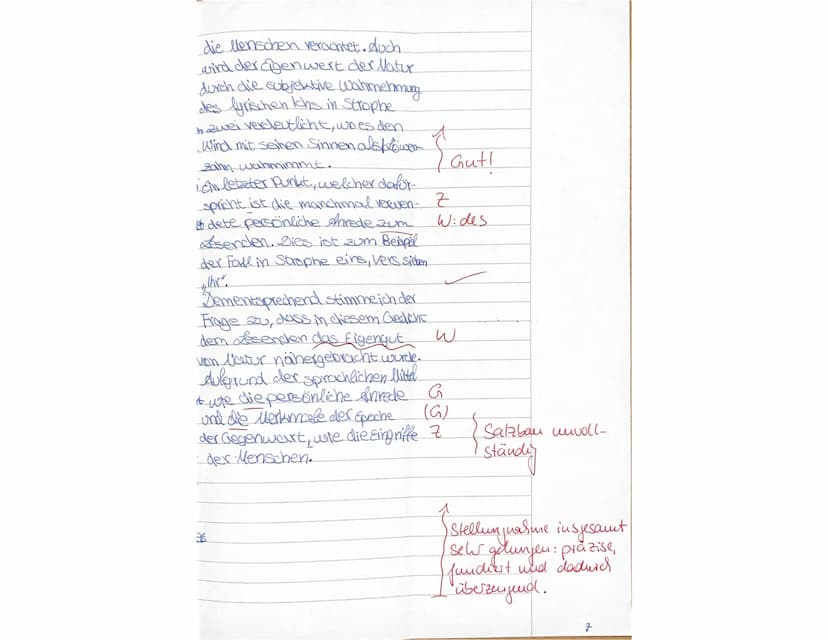 die Menschen verachtet. Auch
wird der Eigenwert der Natur
durch die subjektive Wahrnehmung
des lyrischen Ichs in Strophe
zwei verdeutlicht, wo es den
Wind mit seinen Sinnen als
zahn wahrnimmt.
Gut!
Ein letzter Punkt, welcher dafür-
spricht ist die manchmal verwen-
Z
dete persönliche Anrede zum
W: des
Lesenden. Dies ist zum Beispiel
der Fall in Strophe eins, Vers sieben
„Ihr“.
Dementsprechend stimme ich der
Frage zu, dass in diesem Gedicht
dem Lesenden das Eigengut
W
von Natur nähergebracht wurde.
Aufgrund der sprachlichen Mittel
wie die persönliche Anrede
G
und die Merkmale der Epoche
(G)
der Gegenwart, wie die Eingriffe
Z
der Menschen.
Satzbau unvoll-
ständig
Stellungnahme insgesamt
sehr gelungen: präzise,
fundiert und dadurch
überzeugend.
7